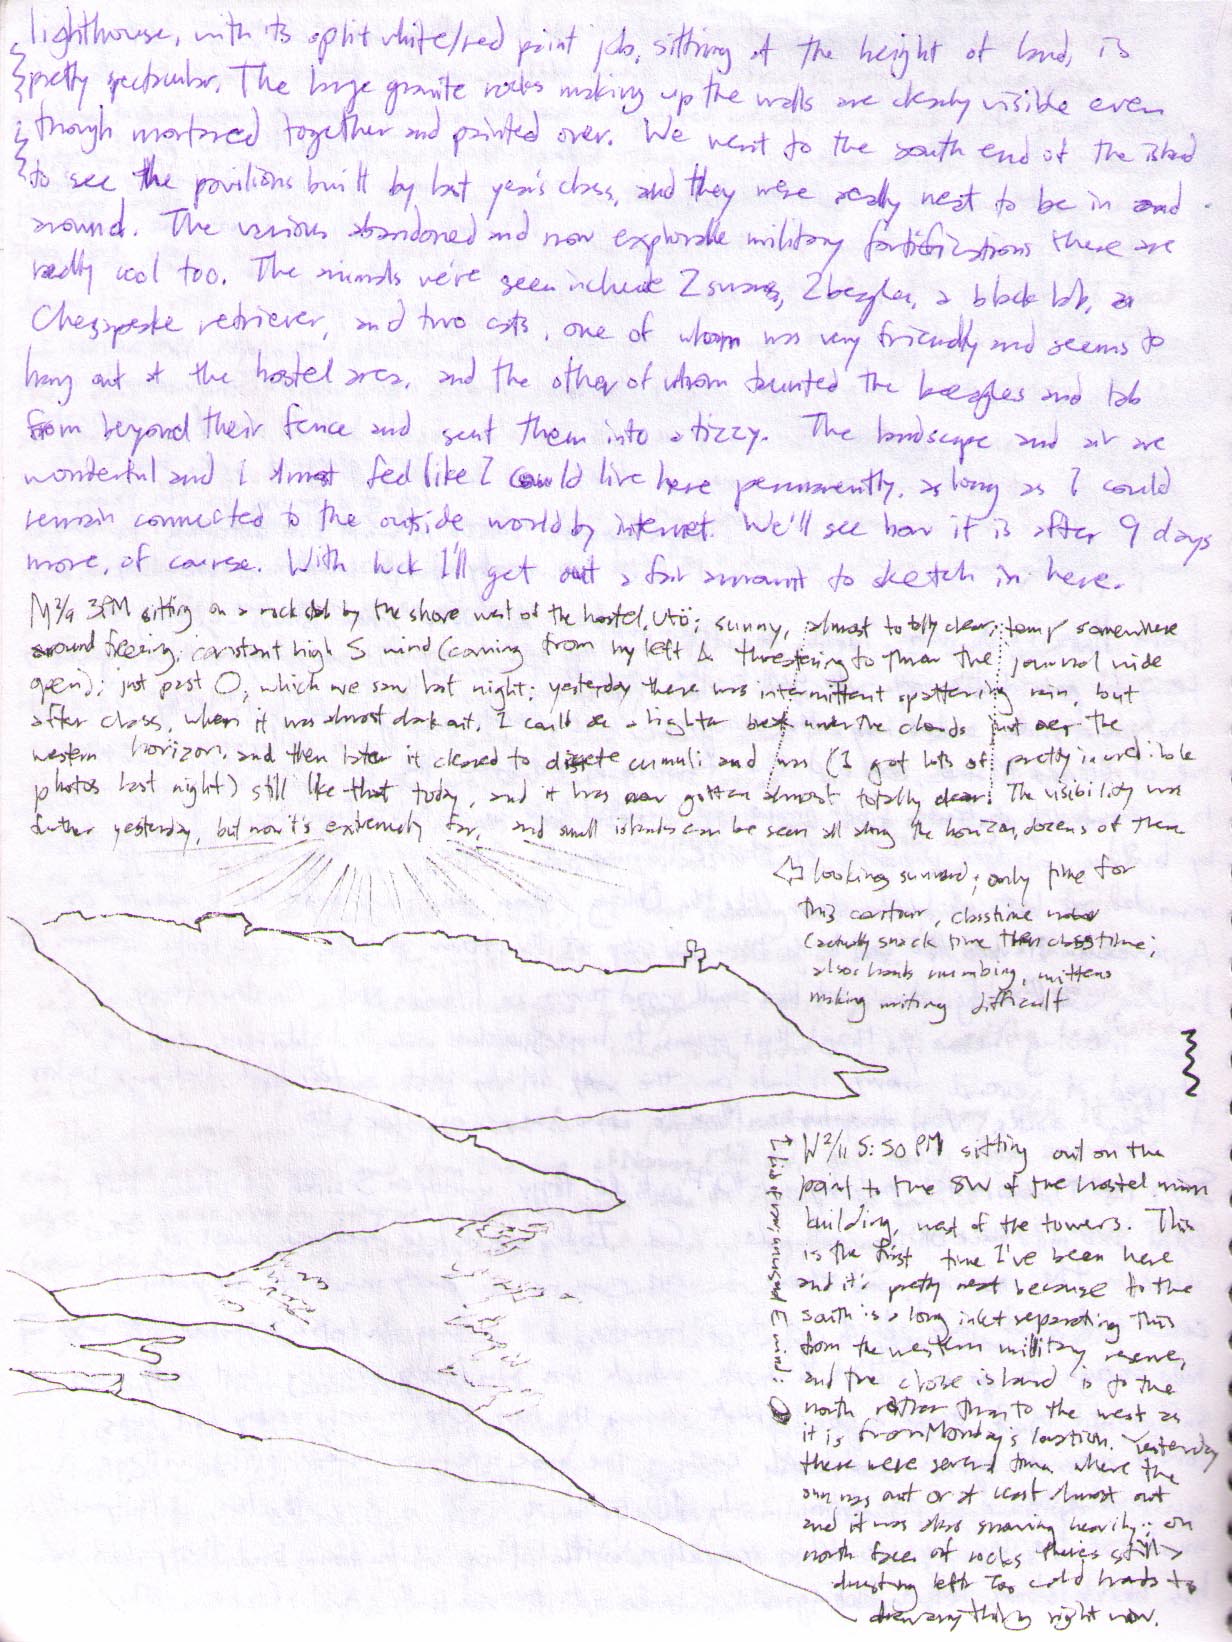 lighthouse, with its split white/red paint job, sitting at the height of land, is
pretty spectacular. The large granite rocks making up the walls are clearly visible even
though mortared together and painted over. We went to the south end of the island
to see the pavilions built by last year's class, and they were really neat to be in and
around. The various abandoned and now explorable military fortifications there are
really cool too. The animals we've seen include 2 swans, 2 beagles, a black lab, a
Chesapeake retriever, and two cats, one of whom was very friendly and seems to
hang out at the hostel area, and the other of whom taunted the beagles and lab
from beyond their fence and sent them into a tizzy. The landscape and air are
wonderful and I almost feel like I could live here permanently, as long as I could
remain connected to the outside world by internet. We'll see how it is after 9 days
more, of course. With luck I'll get out a fair amount to sketch in here.
M 2/9 3PM sitting on a rock slab by the shore west of the hostel, Utö; sunny, almost totally clear; temp somewhere
around freezing; constant high S wind (coming from my left & threatening to throw the journal wide
open); just past O, which we saw last night; yesterday there was intermittent spattering rain, but
after class, when it was almost dark out, I could see a lighter break in the clouds just over the
western horizon, and then later it cleared to discrete cumuli and was (I got lots of pretty incredible
photos last night) still like that today, and it has now gotten almost totally clear. The visibility was
further yesterday, but now it's extremely far, and small islands can be seen all along the horizon, dozens of them
looking sunward; only time for
this contour, classtime now
(actually snack time then classtime;
also hands numbing, mittens
making writing difficult
W 2/11 5:50 PM sitting out on the
point to the SW of the hostel main
building, west of the towers. This
is the first time I've been here
and it's pretty neat because to the
south is a long inlet separating this
from the western military reserve,
and the close island is to the
north rather than to the west as
it is from Monday's location. Yesterday
there were several times where the
sun was out or at least almost out
and it was also snowing heavily; on
north faces of rocks there's still a
dusting left Too cold hands to
draw anything right now.
unusual E wind;